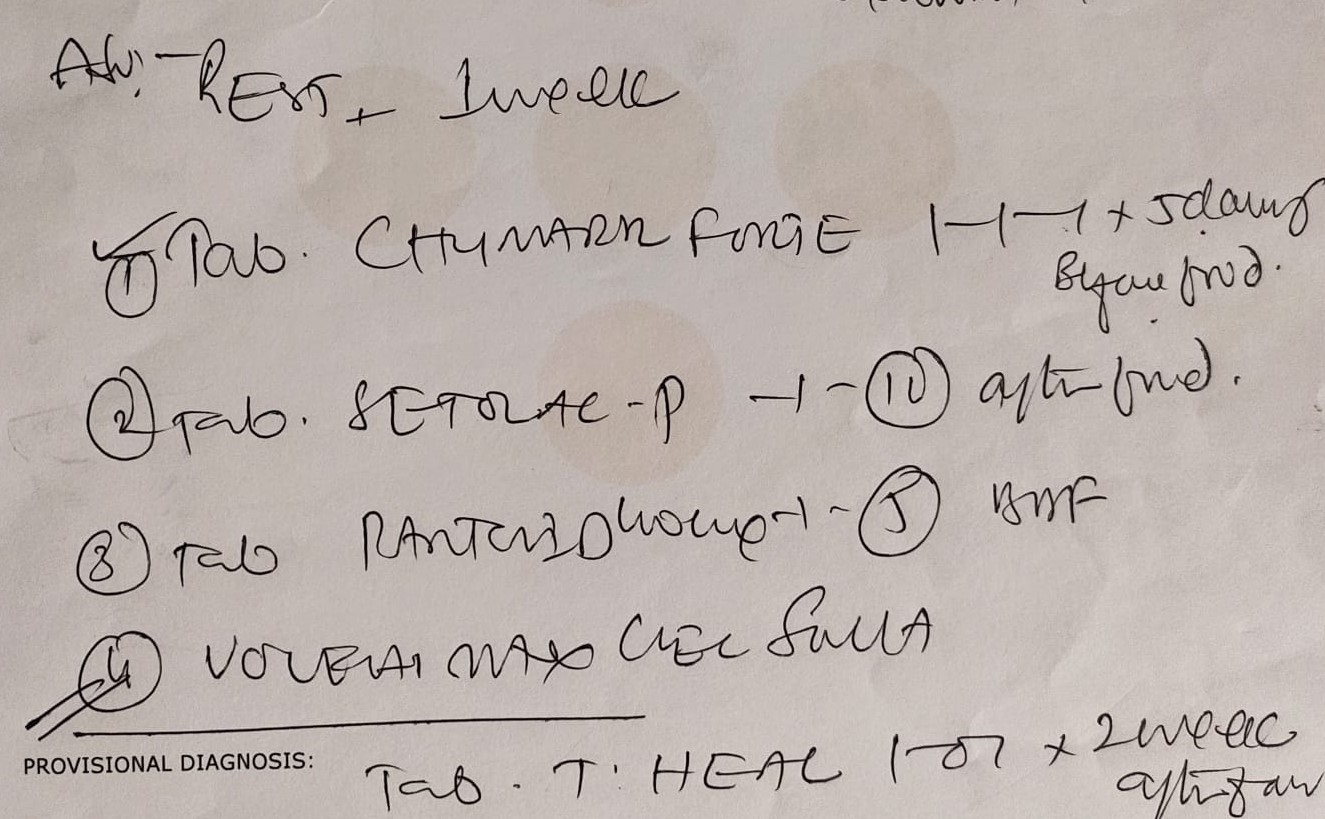 Adv:- REST - 1 week
① Tab. CHYMARN FORTE 1-1-1 x 5 days
Before food.
② Tab. SETOLAC-P -1- ⑩ after food.
③ Tab -1- ⑤ BBF
④ MAX GEL
PROVISIONAL DIAGNOSIS:
Tab. T. HEAL 1-0-1 x 2 week
after